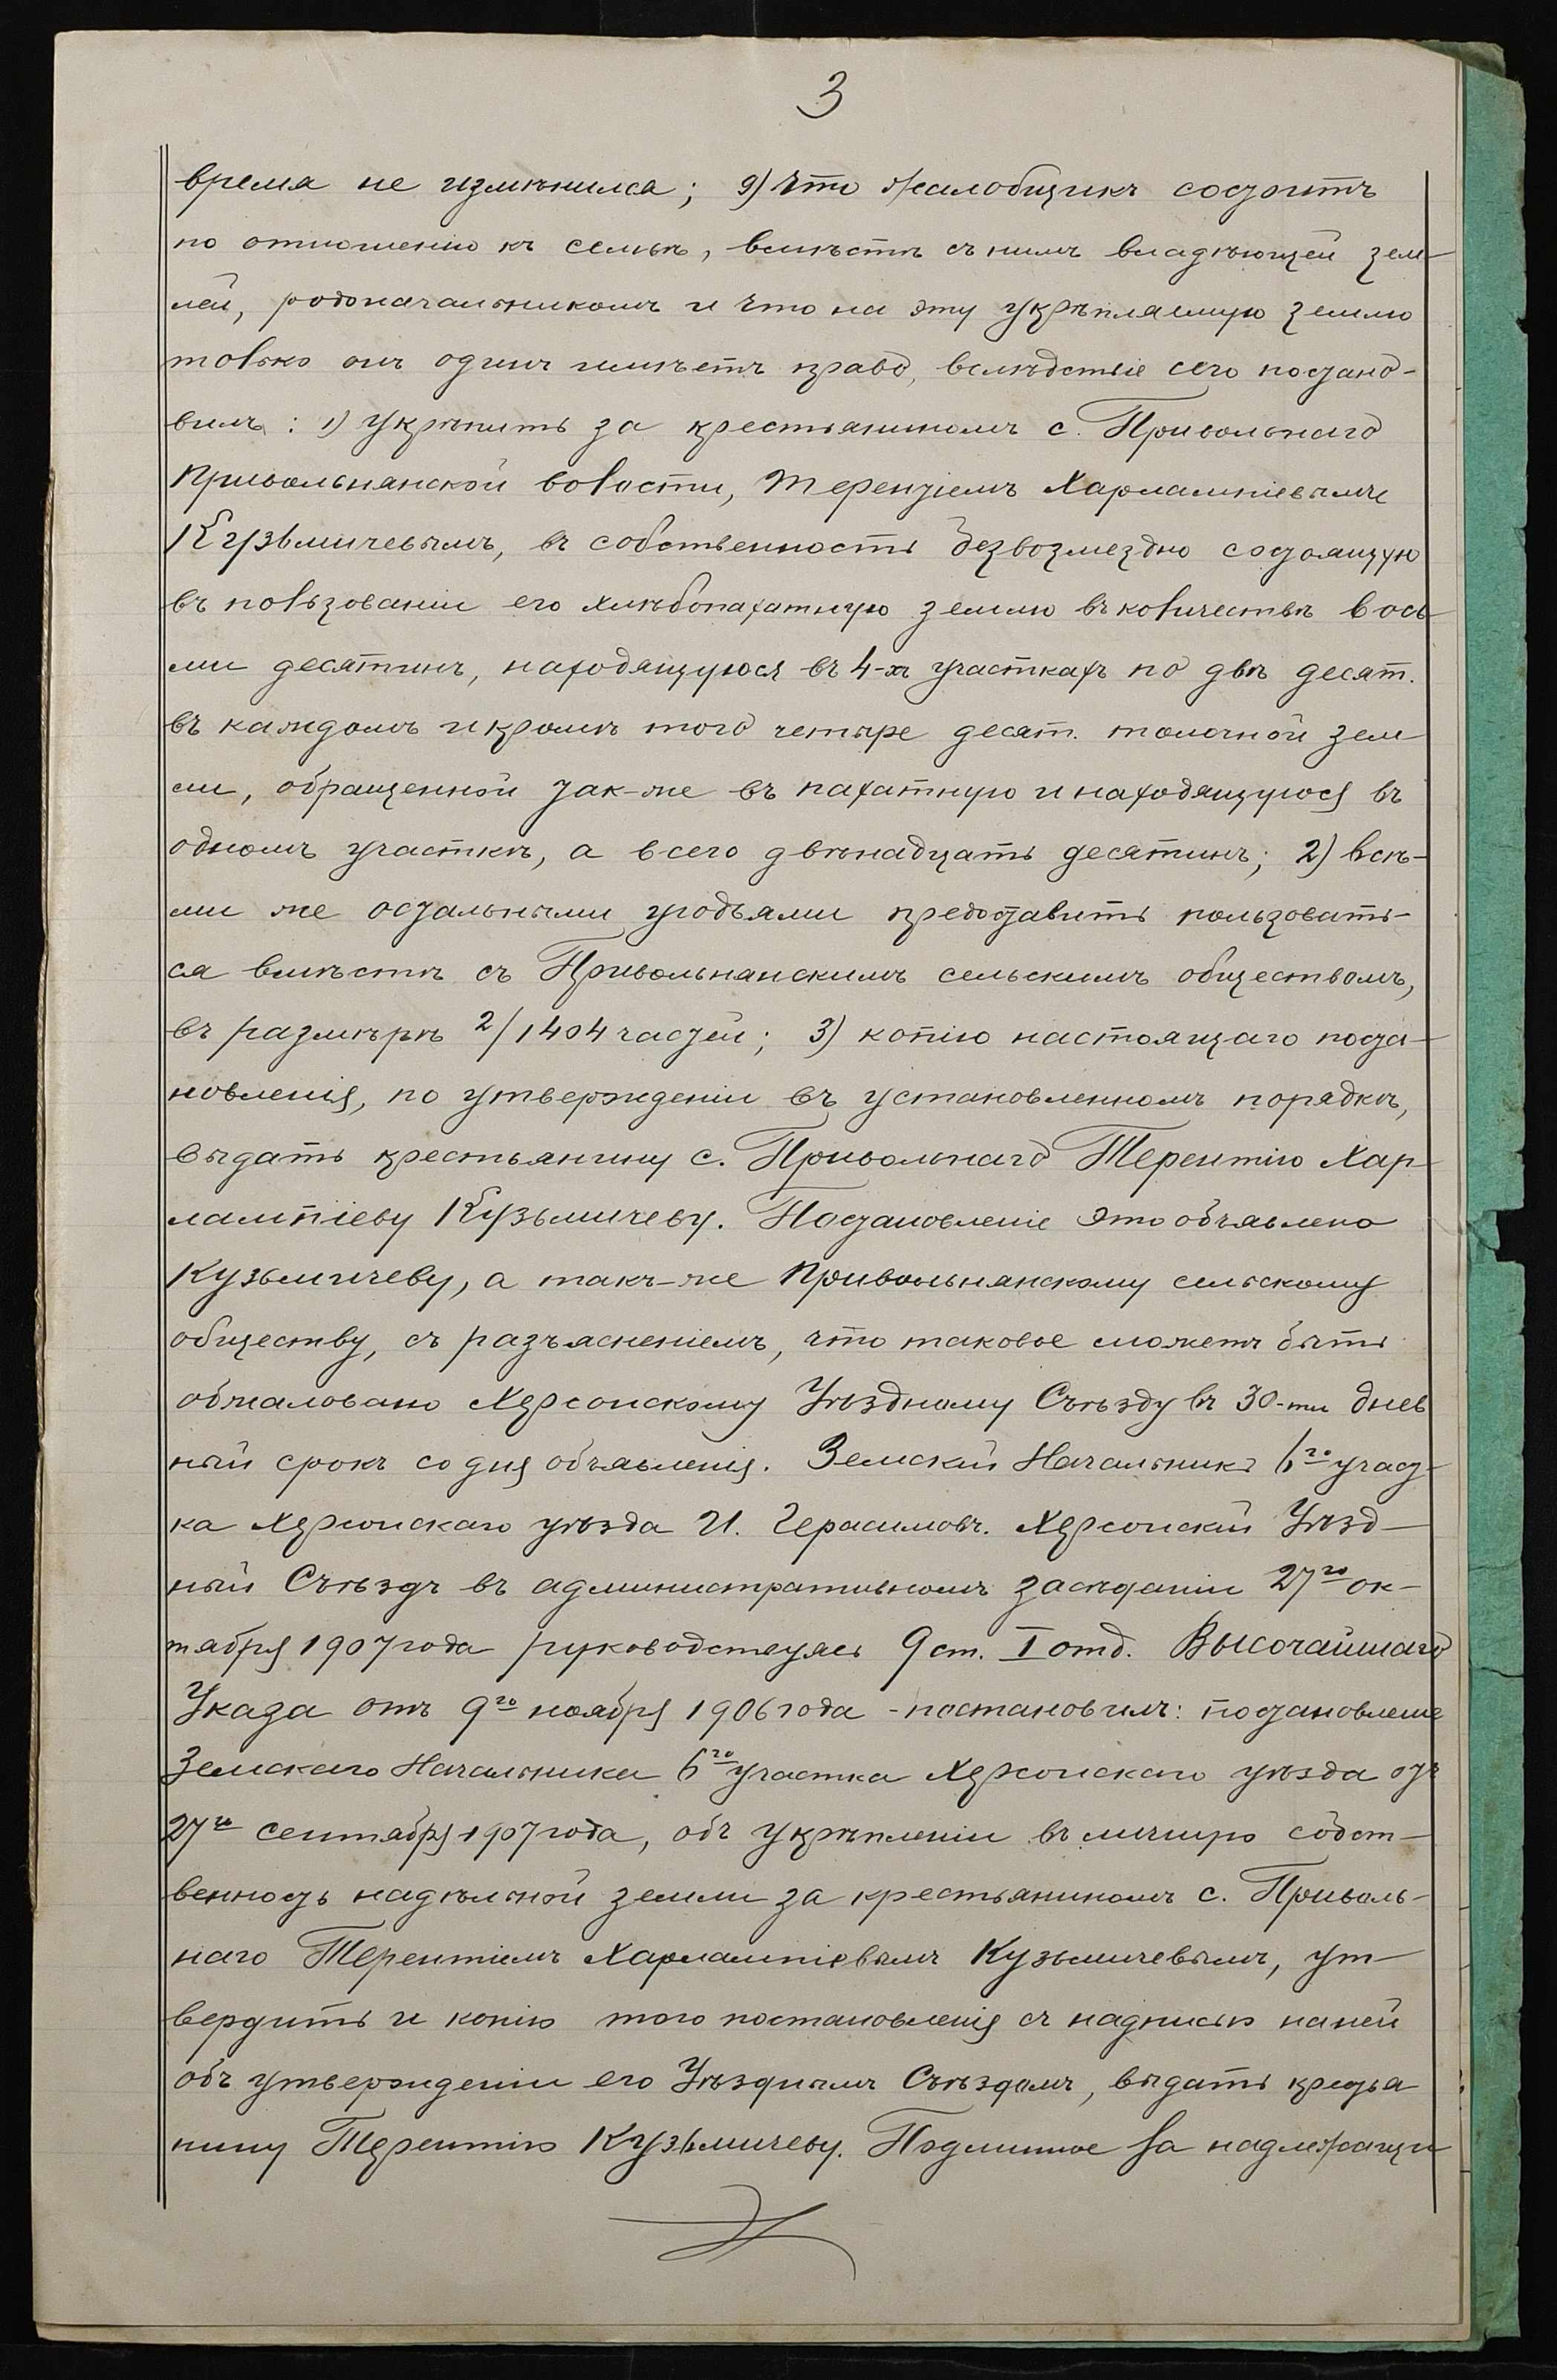 3
время не измѣнился; 9) Что жалобщикъ состоитъ
по отношенію къ семьѣ, вмѣстѣ съ нимъ владѣющей зем-
лей, родоначальникомъ и что на эту укрѣпляемую землю
только онъ одинъ имѣетъ право, вслѣдствіе сего постано-
вилъ: 1) укрѣпить за крестьяниномъ с. Привольнаго
Привольнянской волости, Терентіемъ Харлампіевымъ
Кузьмичевымъ, въ собственность безвозмездно состоящую
въ пользованіи его хлѣбопахатную землю въ количествѣ вось-
ми десятинъ, находящуюся въ 4-хъ участкахъ по двѣ десят.
въ каждомъ и кромѣ того четыре десят. толочной зем-
ли, обращенной так-же въ пахатную и находящуюся въ
одномъ участкѣ, а всего двѣнадцать десятинъ; 2) всѣ-
ми же остальными угодьями предоставить пользовать-
ся вмѣстѣ съ Привольнянскимъ сельскимъ обществомъ,
въ размѣрѣ 2/1404 частей; 3) копію настоящаго поста-
новленія, по утвержденіи въ установленномъ порядкѣ,
выдать крестьянину с. Привольнаго Терентію Хар-
лампіеву Кузьмичеву. Постановленіе это объявлено
Кузьмичеву, а такъ-же Привольнянскому сельскому
обществу, съ разъясненіемъ, что таковое можетъ быть
обжаловано Херсонскому Уѣздному Съѣзду въ 30-ти днев
ный срокъ со дня объявленія. Земскій Начальникъ 6го участ-
ка Херсонскаго уѣзда И. Герасимовъ. Херсонскій Уѣзд-
ный Съѣздъ въ административномъ засѣданіи 27го ок-
тября 1907 года руководствуясь 9 ст. I отд. Высочайшаго
Указа отъ 9го ноября 1906 года - постановилъ: постановленіе
Земскаго Начальника 6го участка Херсонскаго уѣзда отъ
27го сентября 1907 года, объ укрѣпленіи въ личную собст-
венность надѣльной земли за крестьяниномъ с. Приволь-
наго Терентіемъ Харлампіевымъ Кузьмичевымъ, ут-
вердить и копію того постановленія съ надписью на ней
объ утвержденіи его Уѣзднымъ Съѣздомъ, выдать крестья
нину Терентію Кузьмичеву. Подлинное за надлежащи-